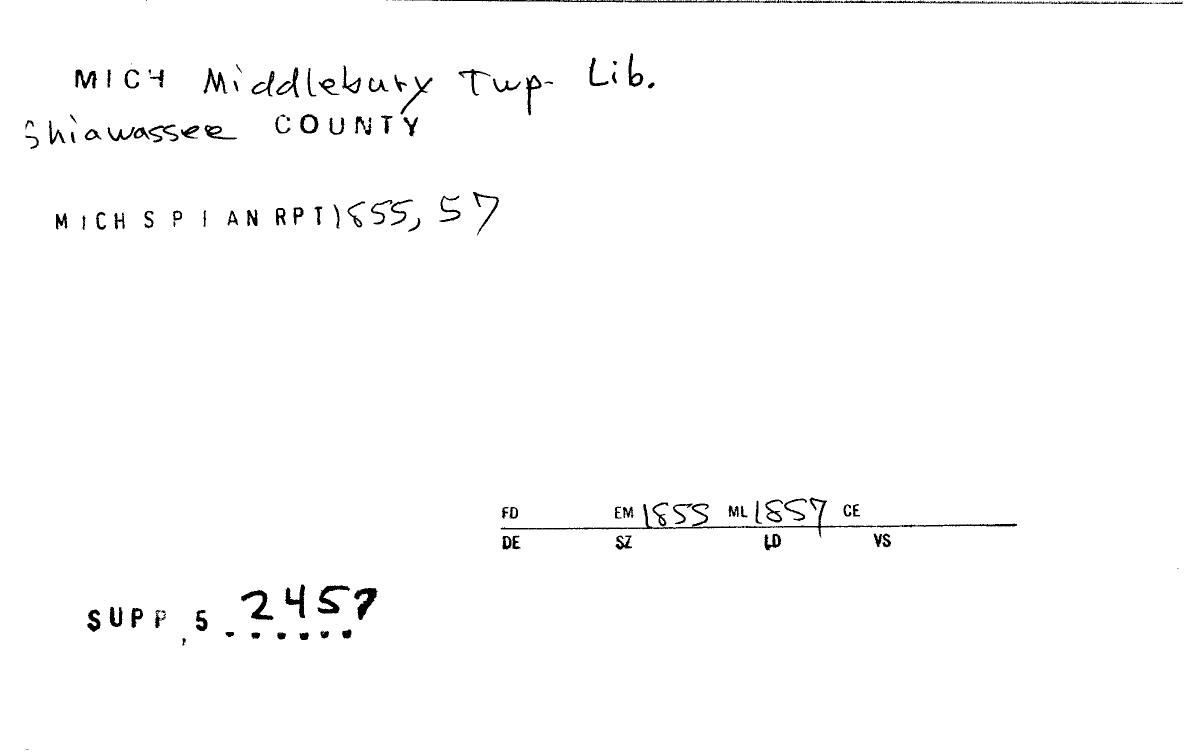 MICH Middlebury Twp. Lib.
Shiawassee COUNTY
MICH S P I AN RPT 1855, 57
FD EM 1855 ML 1857 CE
DE SZ LD VS
SUPP, 5 2457